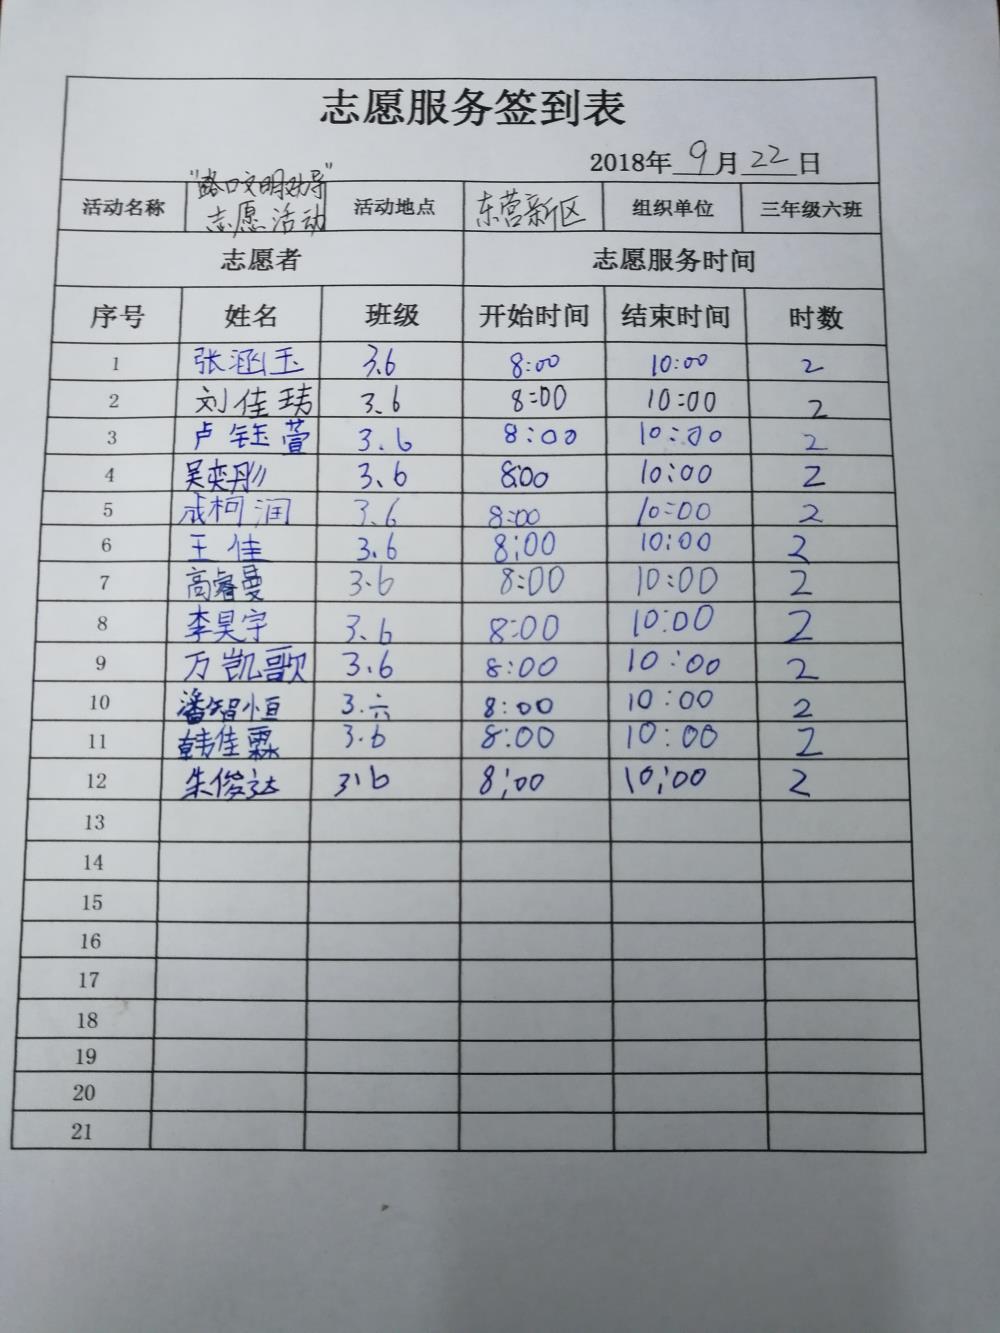 志愿服务签到表
2018年 9 月 22 日
活动名称 "路口文明劝导"志愿活动 活动地点 东营新区 组织单位 三年级六班
志愿者 志愿服务时间
序号 姓名 班级 开始时间 结束时间 时数
1 张涵玉 3.6 8:00 10:00 2
2 刘佳玮 3.6 8:00 10:00 2
3 卢钰萱 3.6 8:00 10:00 2
4 吴奕彤 3.6 8:00 10:00 2
5 成柯润 3.6 8:00 10:00 2
6 王佳 3.6 8:00 10:00 2
7 高睿曼 3.6 8:00 10:00 2
8 李昊宇 3.6 8:00 10:00 2
9 万凯歌 3.6 8:00 10:00 2
10 潘智恒 3.六 8:00 10:00 2
11 韩佳霖 3.6 8:00 10:00 2
12 朱俊达 3.6 8:00 10:00 2
13
14
15
16
17
18
19
20
21